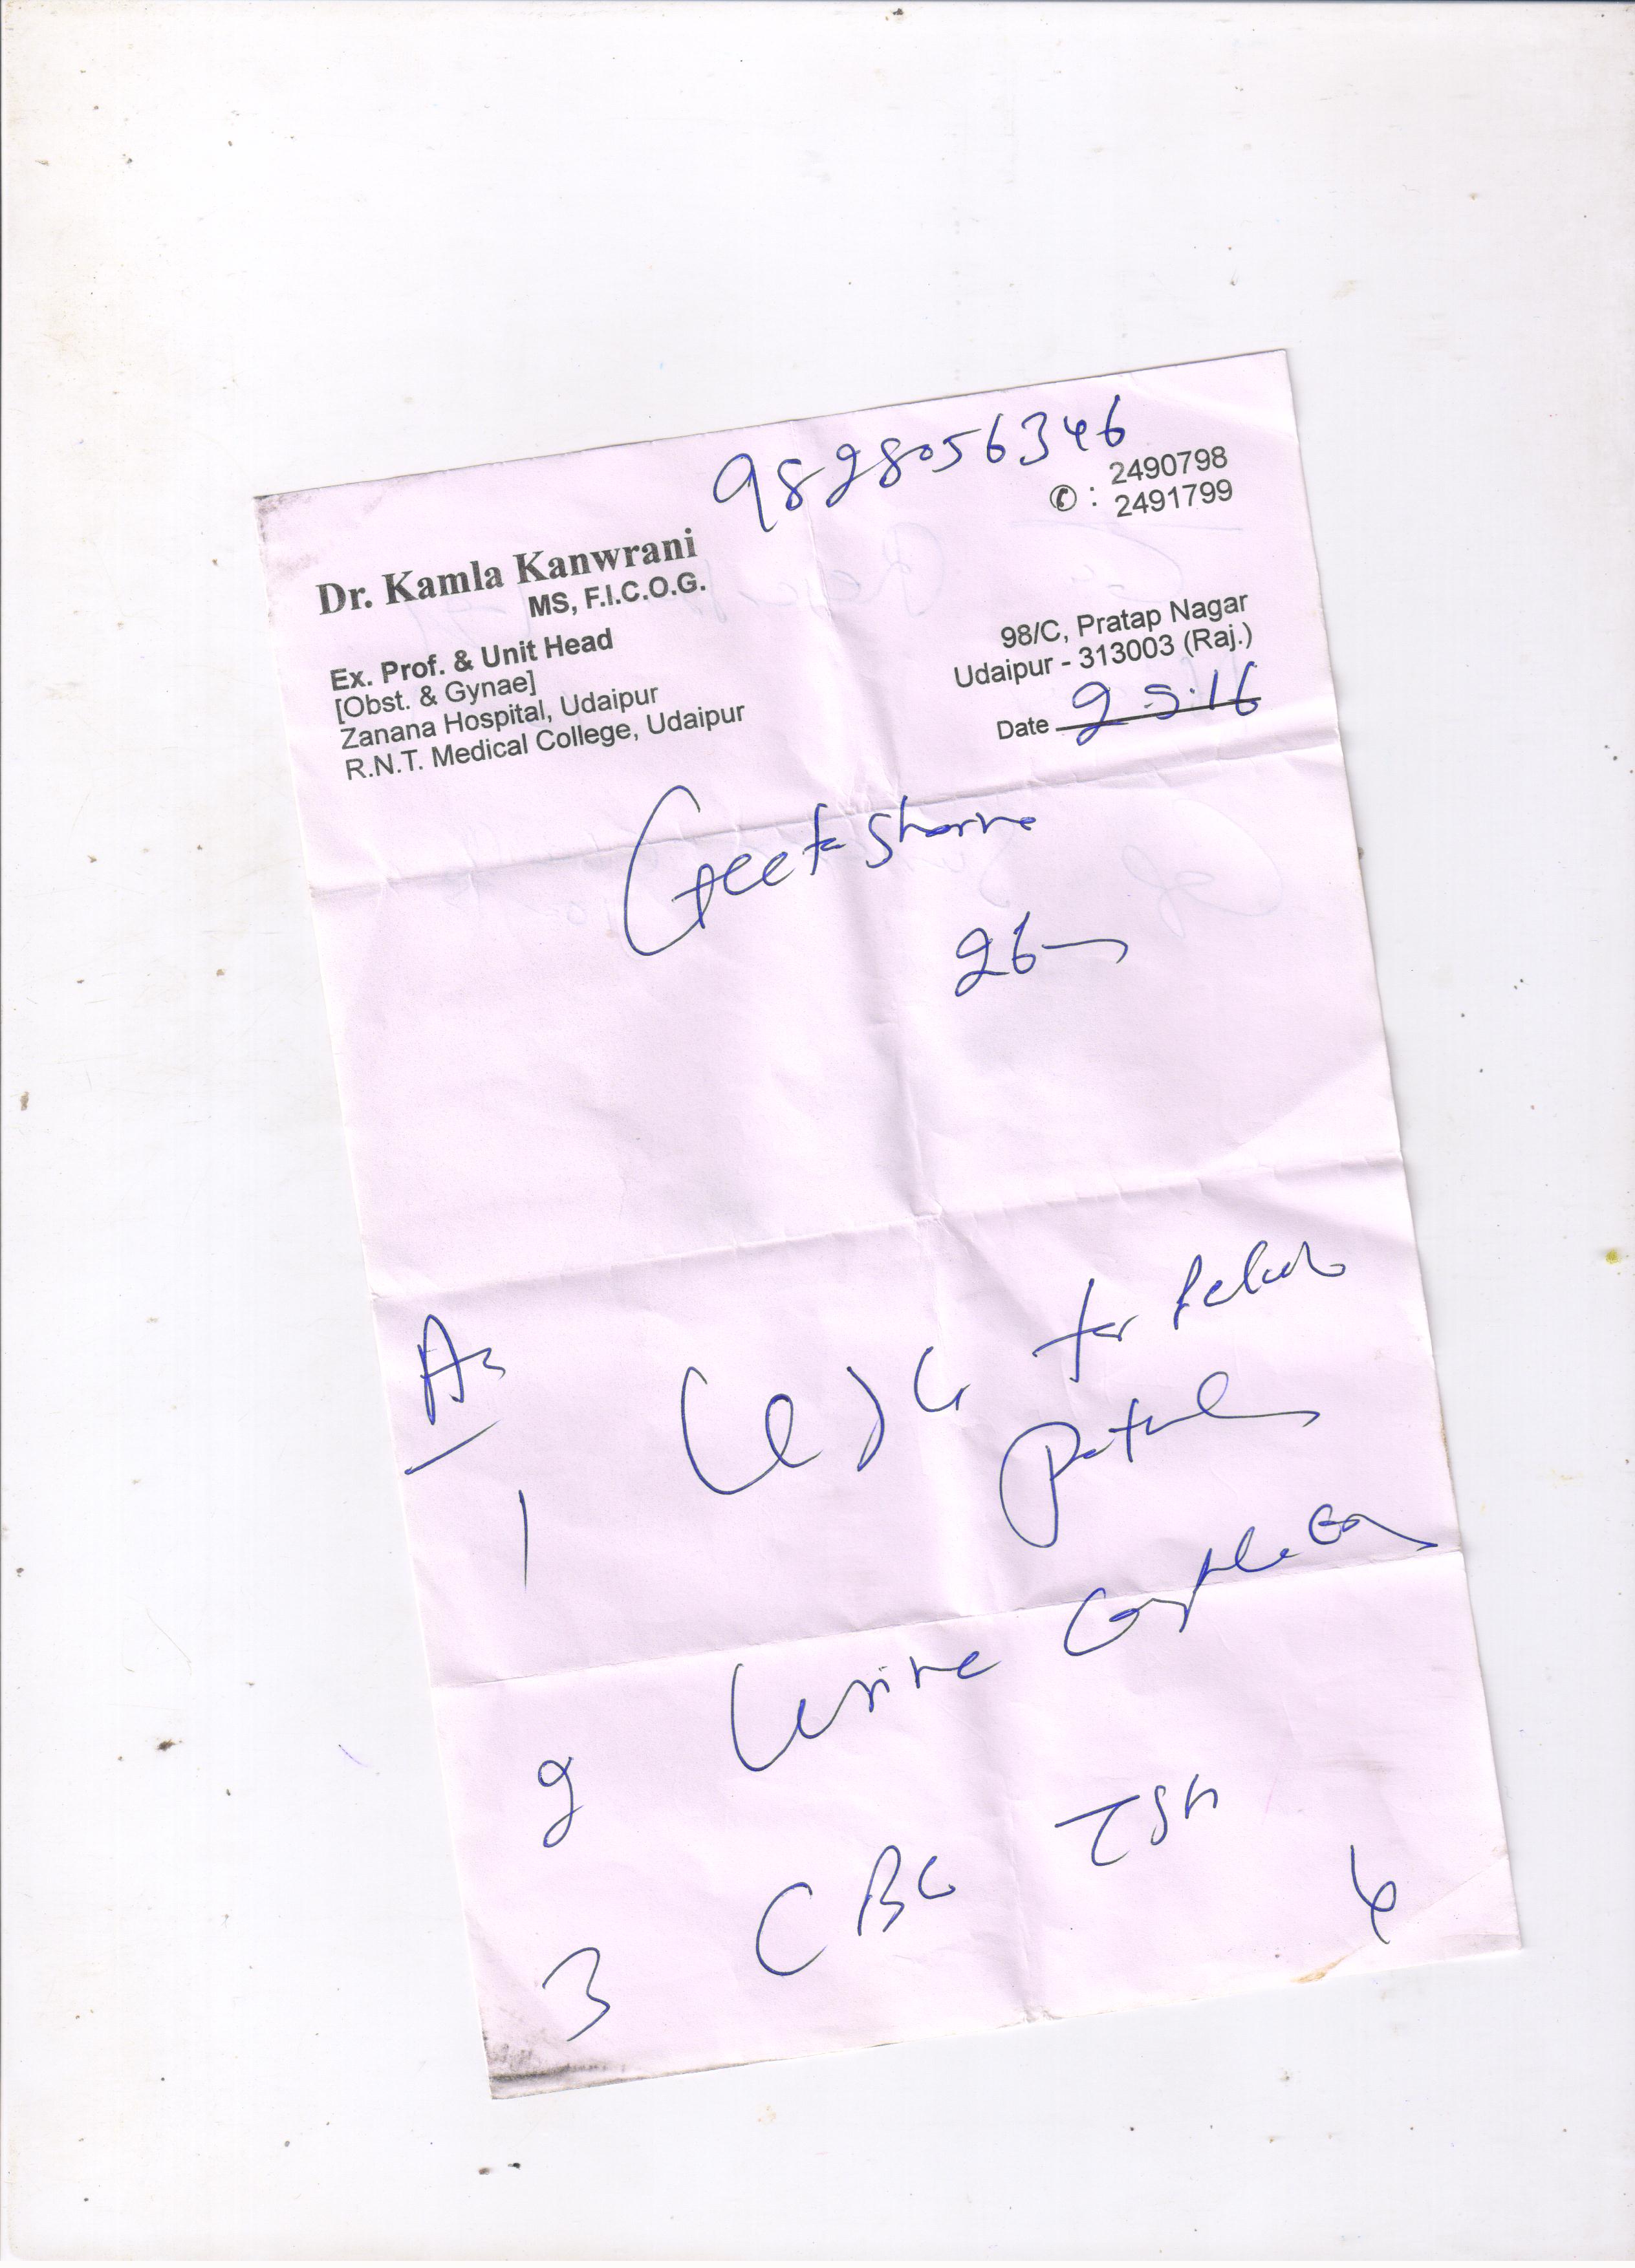 9828056346
✆ : 2490798
2491799
Dr. Kamla Kanwrani
MS, F.I.C.O.G.
Ex. Prof. & Unit Head
[Obst. & Gynae]
Zanana Hospital, Udaipur
R.N.T. Medical College, Udaipur
98/C, Pratap Nagar
Udaipur - 313003 (Raj.)
Date 2.5.16
Geeta Sharma
26
1 for
2 Urine Complete
3 CBC TSH